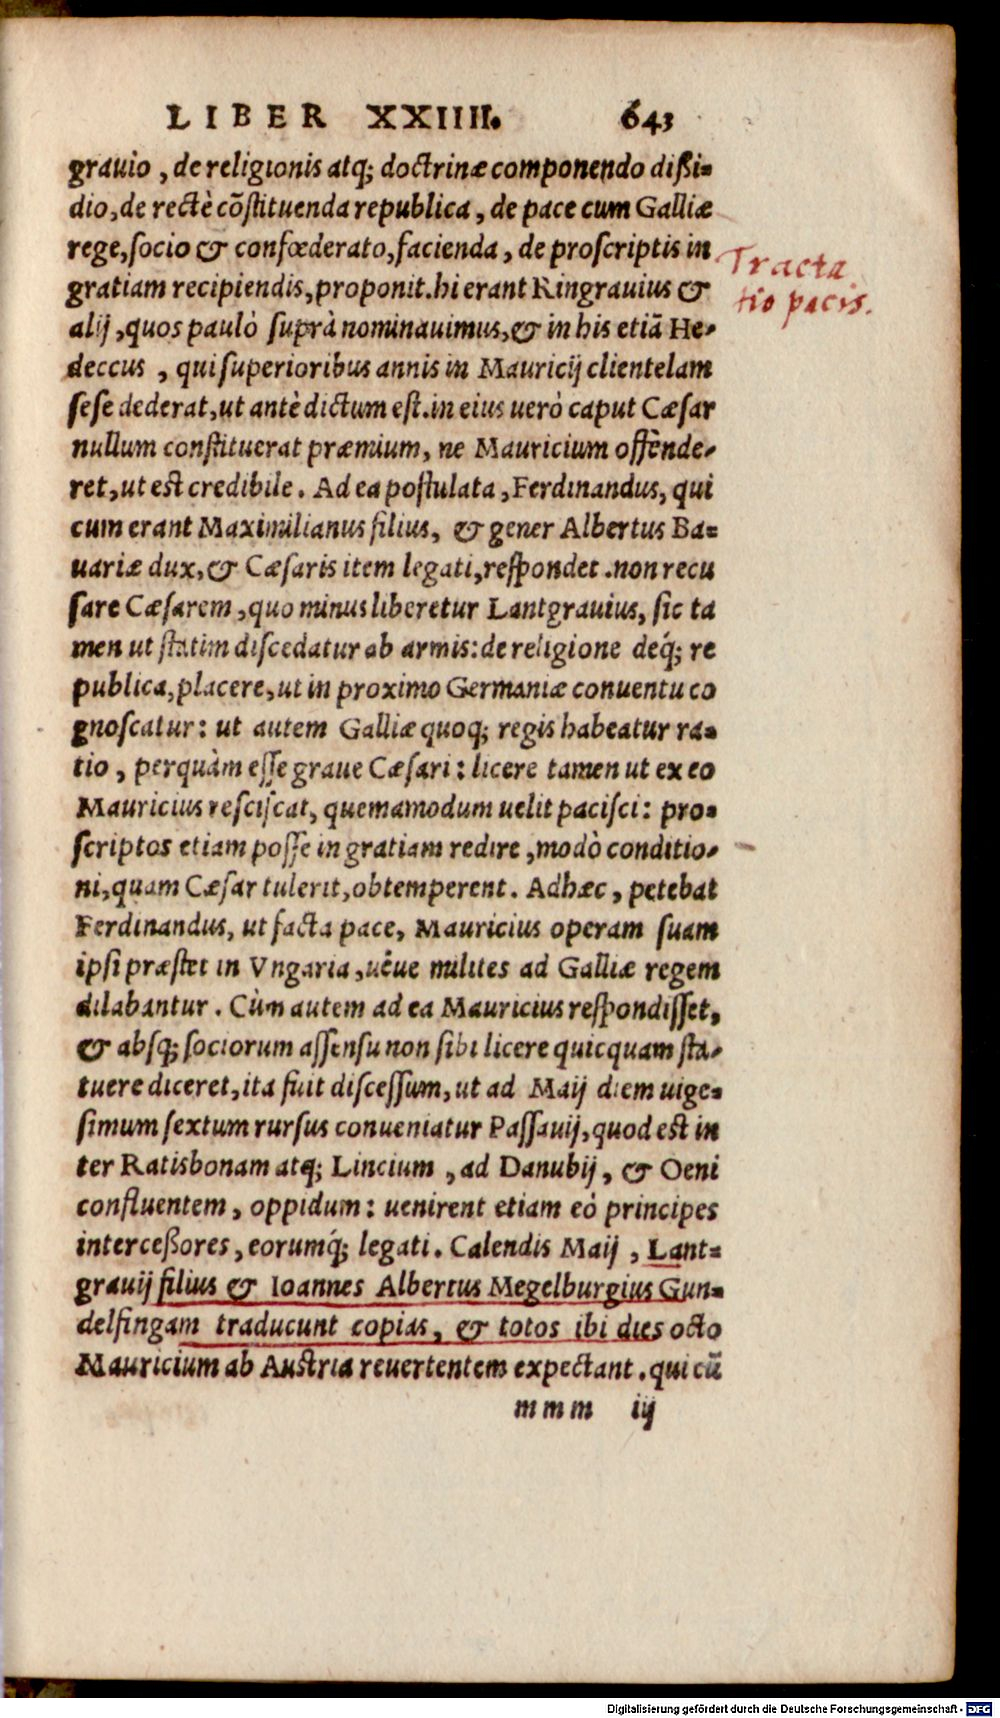 LIBER XXIIII. 643
grauio, de religionis atq; doctrinæ componendo dißi-
dio, de rectè cõstituenda republica, de pace cum Galliæ
rege, socio & confœderato, facienda, de proscriptis in
gratiam recipiendis, proponit. hi erant Ringrauius &
alij, quos paulò suprà nominauimus, & in his etiã He-
deccus, qui superioribus annis in Mauricij clientelam
sese dederat, ut antè dictum est. in eius uerò caput Cæsar
nullum constituerat præmium, ne Mauricium offende-
ret, ut est credibile. Ad ea postulata, Ferdinandus, qui
cum erant Maximilianus filius, & gener Albertus Ba-
uariæ dux, & Cæsaris item legati, respondet. non recu
sare Cæsarem, quo minus liberetur Lantgrauius, sic ta
men ut statim discedatur ab armis: de religione deq́; re
publica, placere, ut in proximo Germaniæ conuentu co
gnoscatur: ut autem Galliæ quoq; regis habeatur ra-
tio, perquàm esse graue Cæsari: licere tamen ut ex eo
Mauricius resciscat, quemamodum uelit pacisci: pro-
scriptos etiam posse in gratiam redire, modò conditio-
ni, quam Cæsar tulerit, obtemperent. Adhæc, petebat
Ferdinandus, ut facta pace, Mauricius operam suam
ipsi præstet in Vngaria, uéue milites ad Galliæ regem
dilabantur. Cùm autem ad ea Mauricius respondisset,
& absq; sociorum assensu non sibi licere quicquam sta-
tuere diceret, ita fuit discessum, ut ad Maij diem uige-
simum sextum rursus conueniatur Passauij, quod est in
ter Ratisbonam atq; Lincium, ad Danubij, & Oeni
confluentem, oppidum: uenirent etiam eò principes
interceßores, eorumq́; legati. Calendis Maij, Lant-
grauij filius & Ioannes Albertus Megelburgius Gun-
delfingam traducunt copias, & totos ibi dies octo
Mauricium ab Austria reuertentem expectant. qui cũ
mmm iij
Tracta
tio pacis.
Digitalisierung gefördert durch die Deutsche Forschungsgemeinschaft - DFG